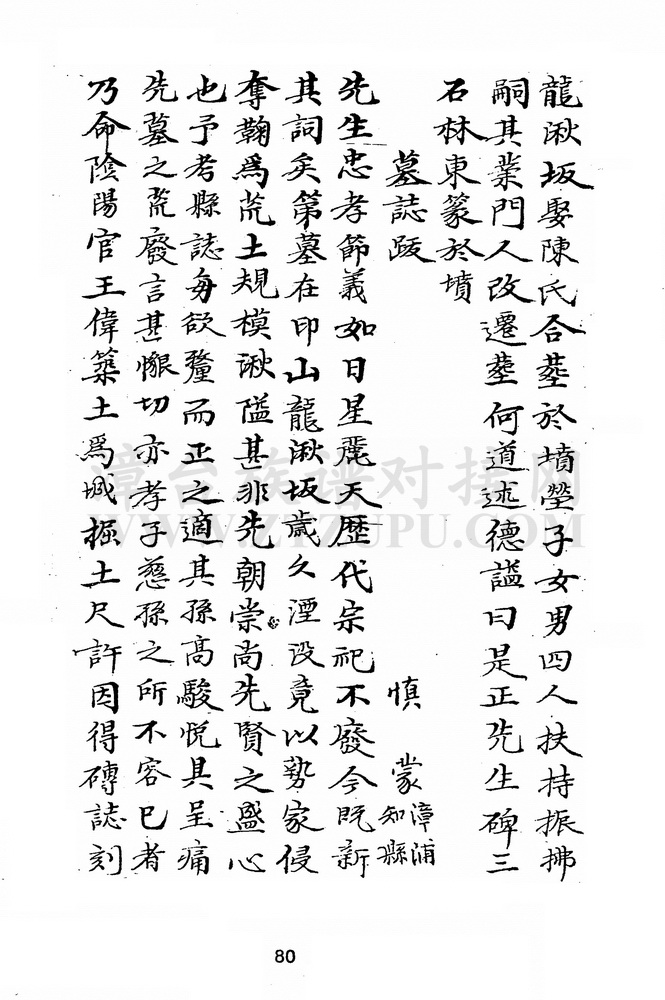 龍湫坂娶陳氏合塟於墳塋子女男四人扶持振拂
嗣其業門人改遷塟何道述德謚曰是正先生碑三
石林東篆於墳
墓誌跋 慎蒙漳浦知縣
先生忠孝節義如日星麗天歷代宗祀不廢今既新
其詞矣第墓在印山龍湫坂歲久湮没竟以勢家侵
奪鞠為荒土規模湫隘甚非先朝崇尚先賢之盛心
也予考縣誌每欲釐而正之適其孫高駿悅具呈痛
先墓之荒廢言甚懇切亦孝子慈孫之所不容已者
乃命陰陽官王偉築土為城掘土尺許因得磚誌刻
漳台族谱对接网
WWW.ZTZUPU.COM
80